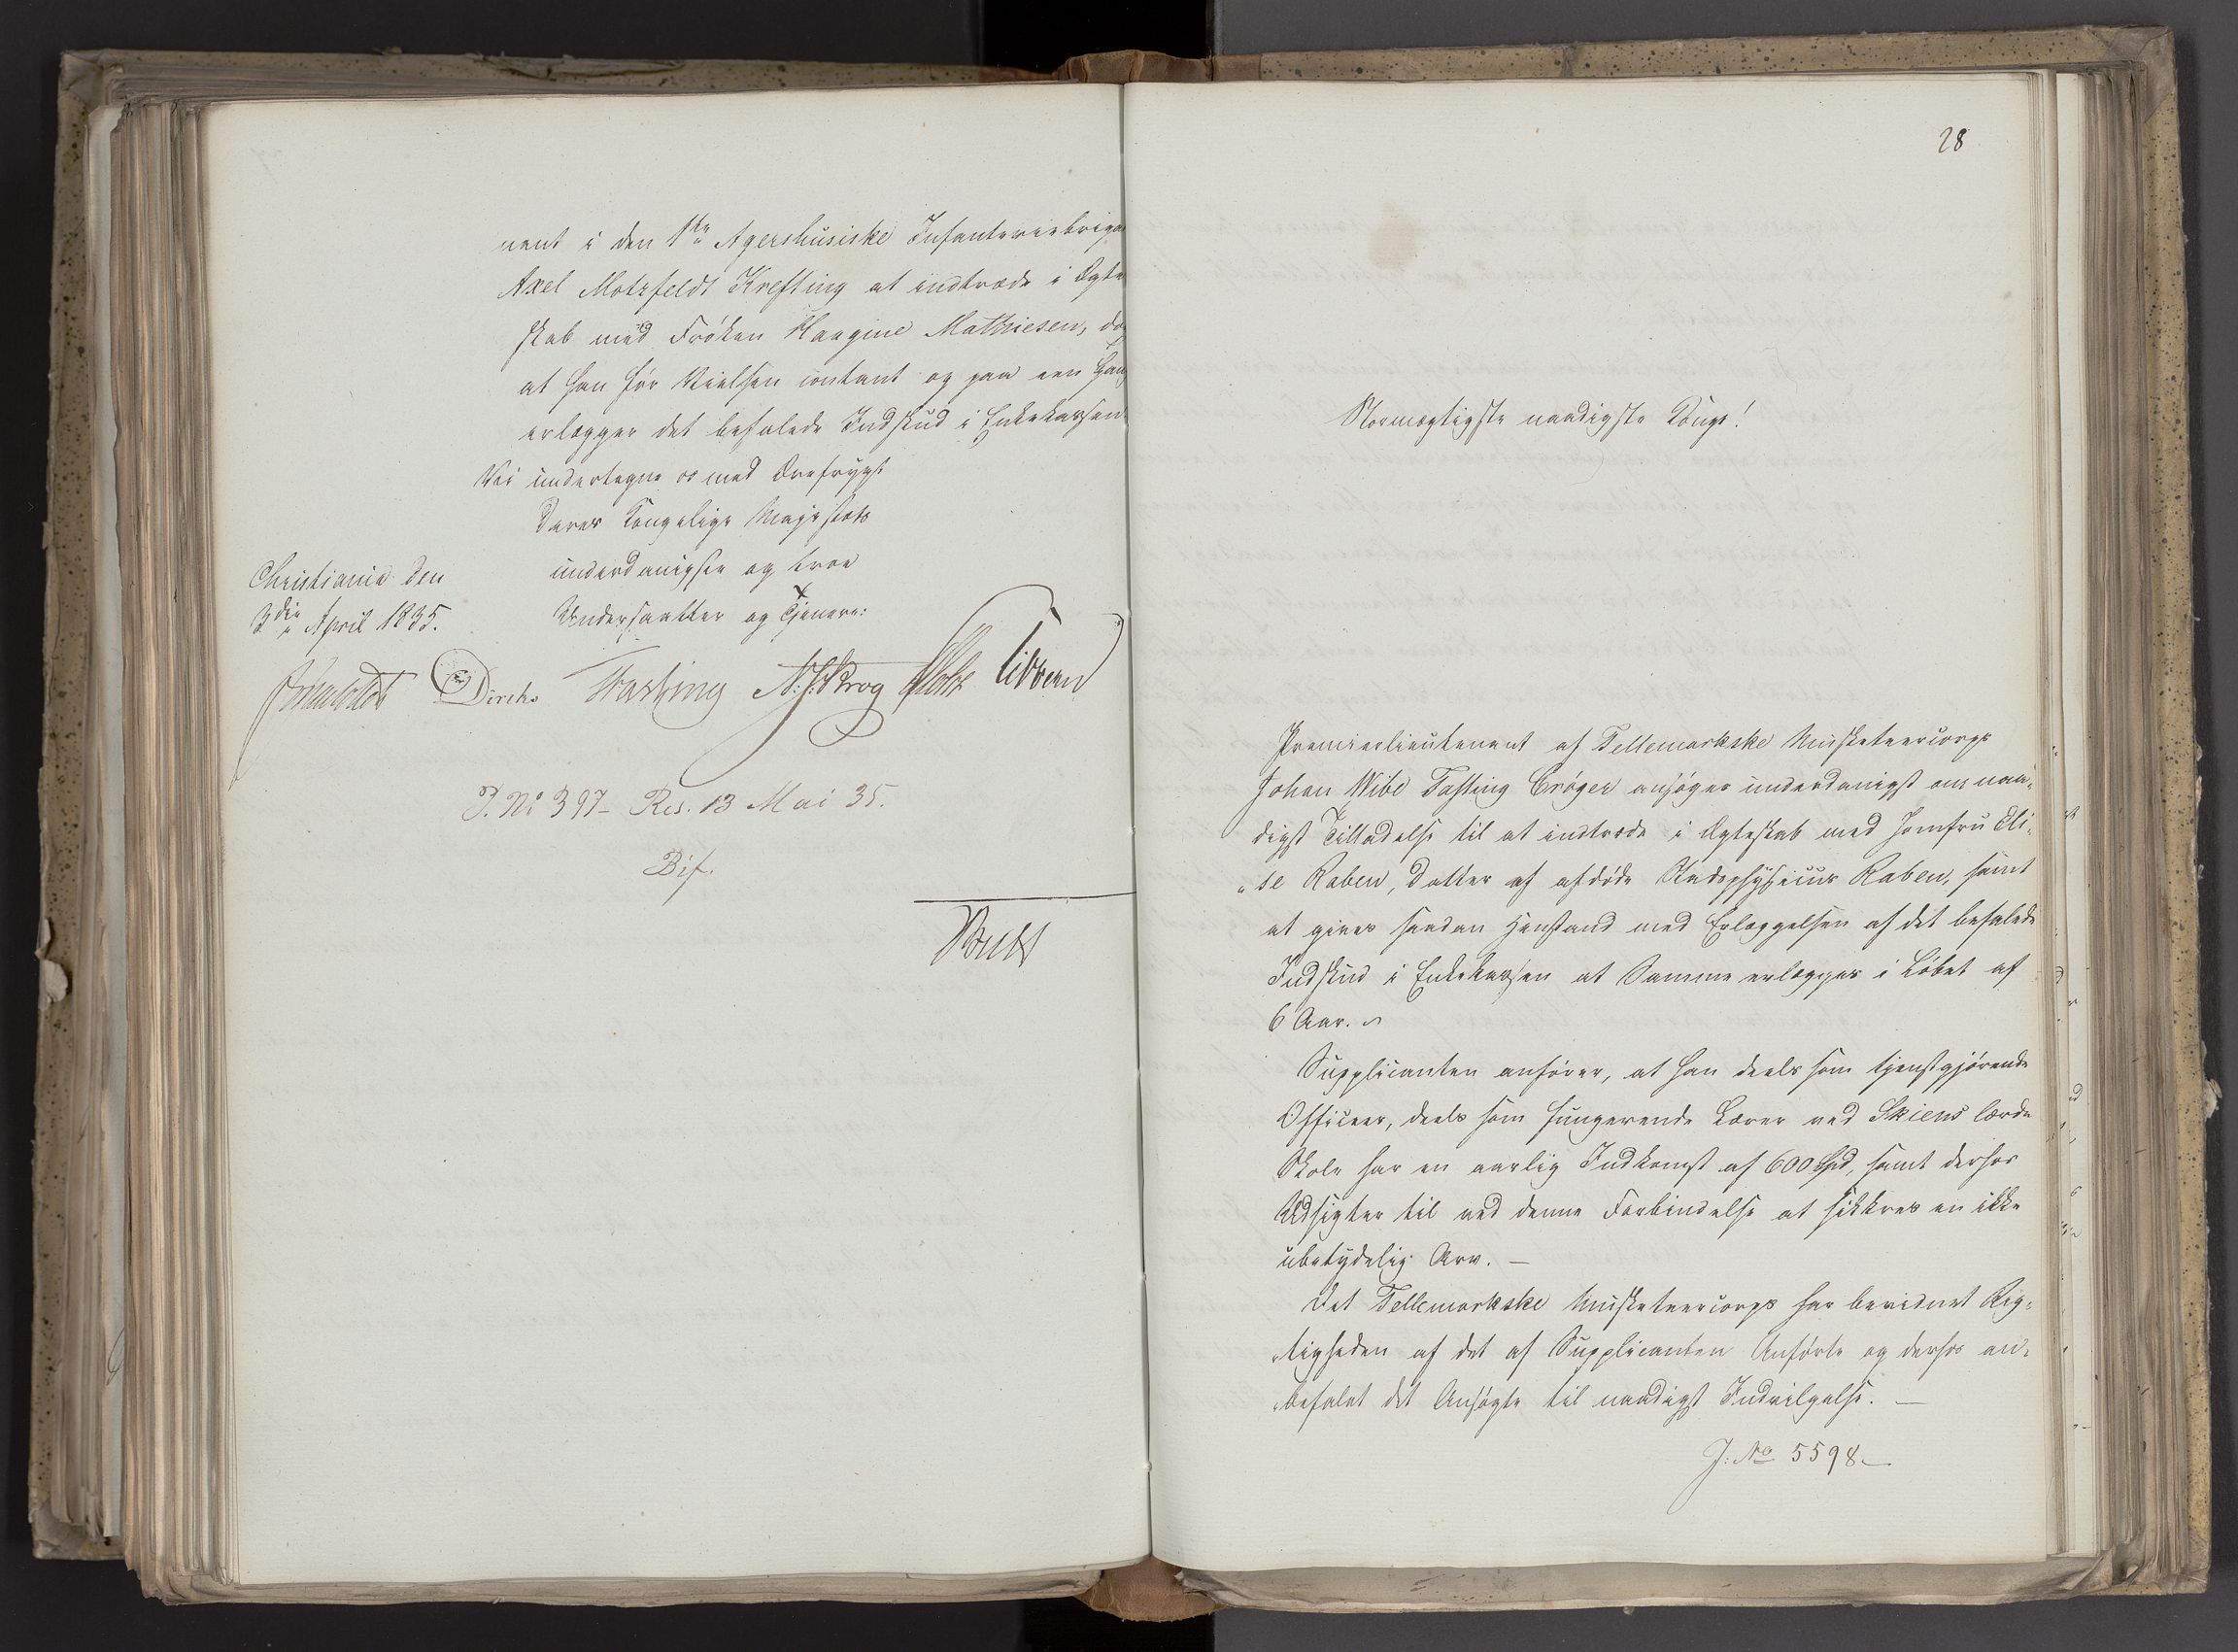 nent i den 1ste Agershusiske Infanteriebriga
Axel Motzfeldt Krefting at indtræde i Ægte
skab med Frøken Haagine Mathiesen, dog
at han før Vielsen contant og paa een Gang
erlægger det befalede Indskud i Enkekassen.
Vi undertegne os med Ærefrygt
Deres Kongelige Majestæts
underdanigste og troe
Undersaatter og Tjenere:
Christiania den
3die April 1835.
Diriks N. J. Krog Holst Sibbern
J. No 397- Res. 13 Mai 35.
Bif.
28
Stormægtigste naadigste Konge!
Premierlieutenant af Tellemarkske Musketeercorps
Johan Wibe Fasting Crøger ansøger underdanigst om naa-
digst Tilladelse til at indtræde i Ægteskab med Jomfru Eli-
"se Raben, Datter af afdøde Stadsphysicus Raben, samt
at gives saadan Henstand med Erlæggelsen af det befalede
Indskud i Enkekassen at Samme erlægges i Løbet af
6 Aar.
Supplicanten anfører, at han deels som tjenstgjørende
Officeer, deels som fungerende Lærer ved Skiens lærde
Skole har en aarlig Indkomst af 600 Spd, samt derhos
Udsigter til ved denne Forbindelse at sikkres en ikke
ubetydelig Arv. —
Det Tellemarkske Musketeercorps har bevidnet Rig-
"tigheden af det af Supplicanten Anførte og derhos an-
"befalet det Ansøgte til naadigst Indvilgelse. —
J: No 5598 —